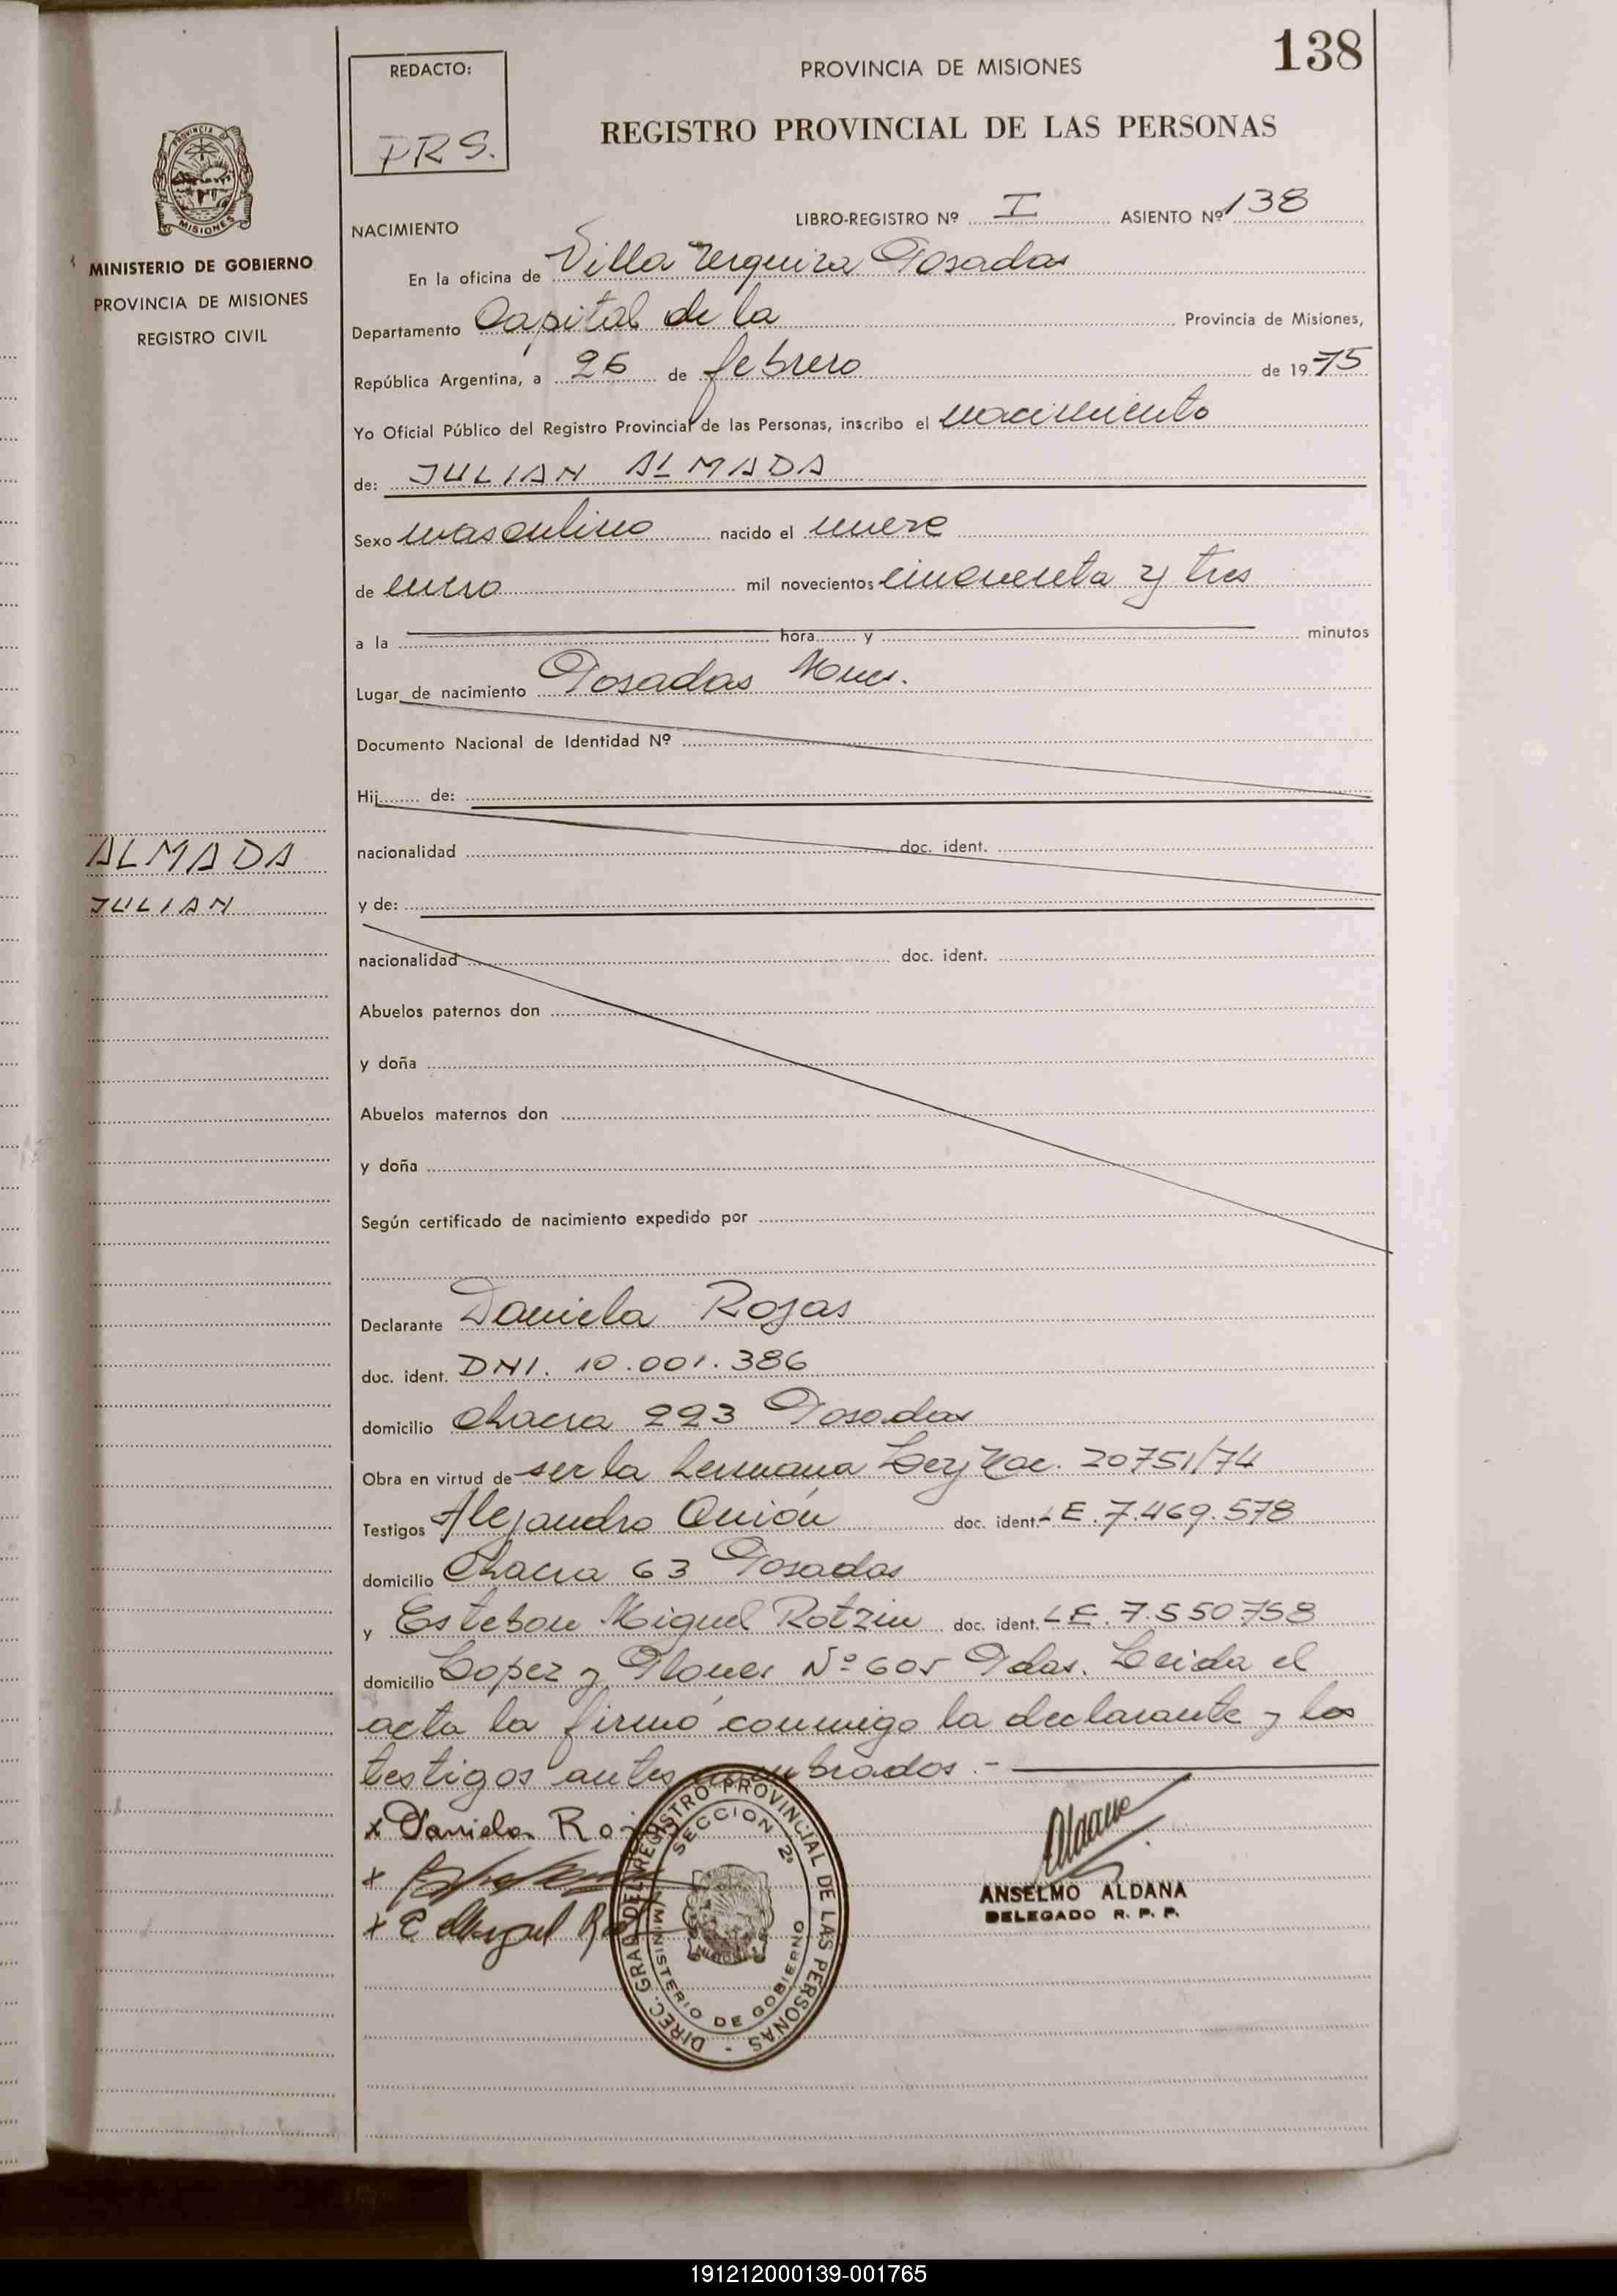 138
REDACTO:
PRS.
PROVINCIA DE MISIONES
REGISTRO PROVINCIAL DE LAS PERSONAS
PROVINCIA DE
MISIONES
MINISTERIO DE GOBIERNO
PROVINCIA DE MISIONES
REGISTRO CIVIL
NACIMIENTO
LIBRO-REGISTRO Nº I ASIENTO Nº 138
En la oficina de Villa Urquiza Posadas
Departamento Capital de la Provincia de Misiones,
República Argentina, a 26 de febrero de 1975
Yo Oficial Público del Registro Provincial de las Personas, inscribo el nacimiento
de: JULIAN ALMADA
Sexo masculino nacido el nueve
de enero mil novecientos cincuenta y tres
a la hora y minutos
Lugar de nacimiento Posadas Mnes.
Documento Nacional de Identidad Nº
Hij de:
ALMADA
JULIAN
nacionalidad doc. ident.
y de:
nacionalidad doc. ident.
Abuelos paternos don
y doña
Abuelos maternos don
y doña
Según certificado de nacimiento expedido por
Declarante Daniela Rojas
doc. ident. DNI. 10.001.386
domicilio Chacra 223 Posadas
Obra en virtud de ser la hermana Ley Nac. 20751/74
Testigos Alejandro doc. ident. LE. 7.469.578
domicilio Chacra 63 Posadas
y Esteban Miguel Rotzin doc. ident. LE. 7.550.758
domicilio Lopez y Planes Nº 605 Pdas. Leida el
acta la firmó conmigo la declarante y los
testigos antes nombrados.-
x Daniela Roj
x
x E Miguel
DIREC. GRAL. DEL REGISTRO PROVINCIAL DE LAS PERSONAS -
SECCION 2º
MINISTERIO DE GOBIERNO
MISIONES
Aldana
ANSELMO ALDANA
DELEGADO R. P. P.
191212000139-001765